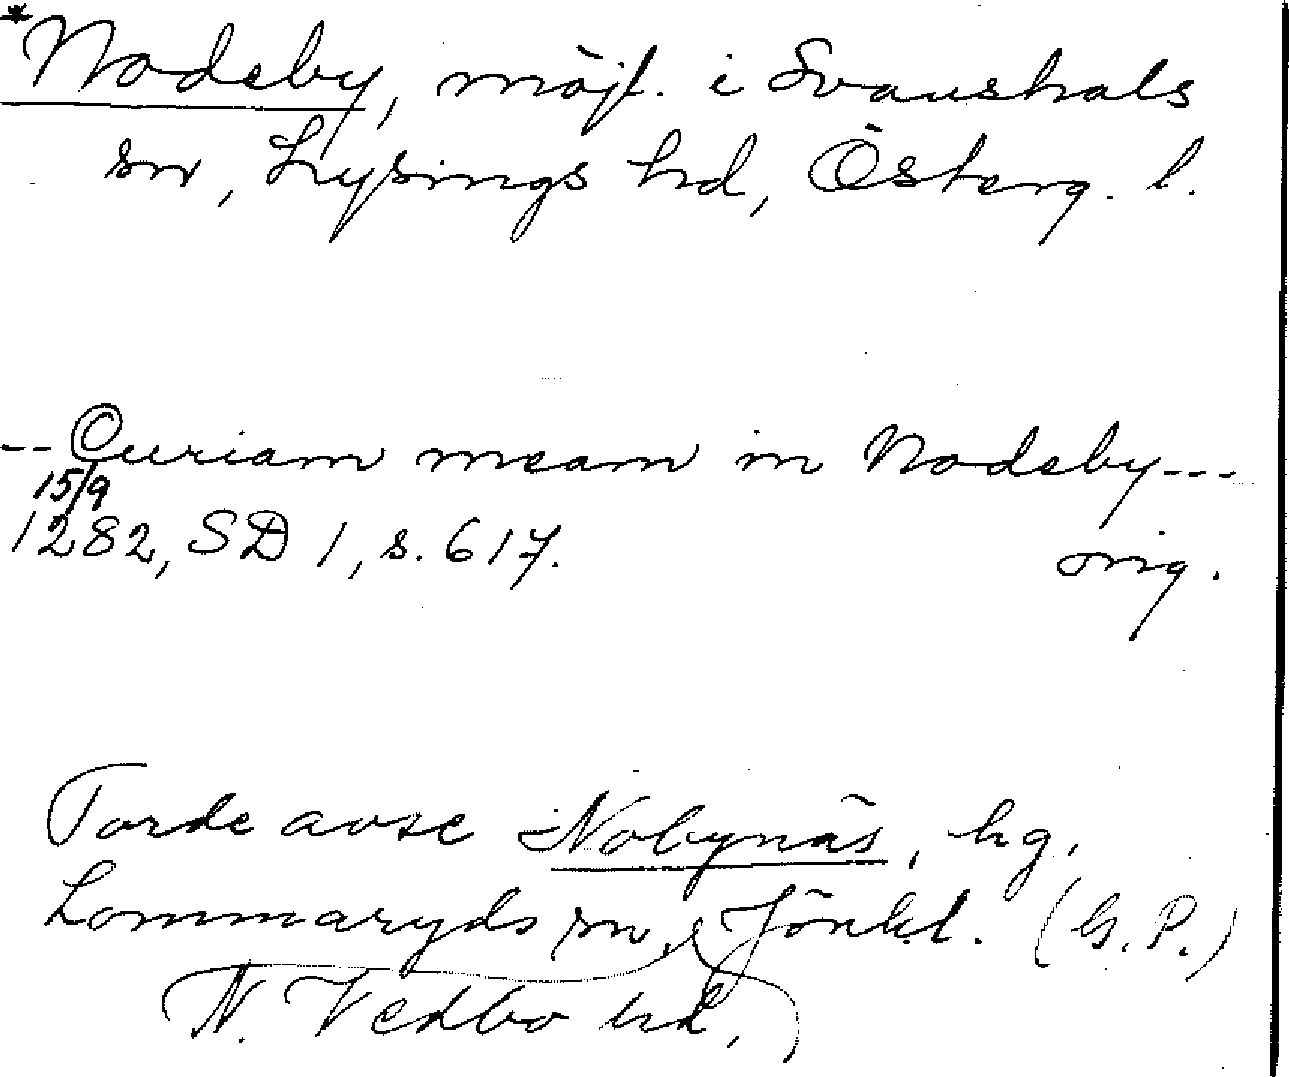 *Nodeby, möjl. i Svanshals
sn, Lysings hd, Österg. l.
-- Curiam meam in Nodeby ---
15/9
1282, SD 1, s. 617. orig.
Torde avse Nobynäs, hg,
Lommaryds sn, Jönk.l. (G.P.)
N. Vedbo hd,